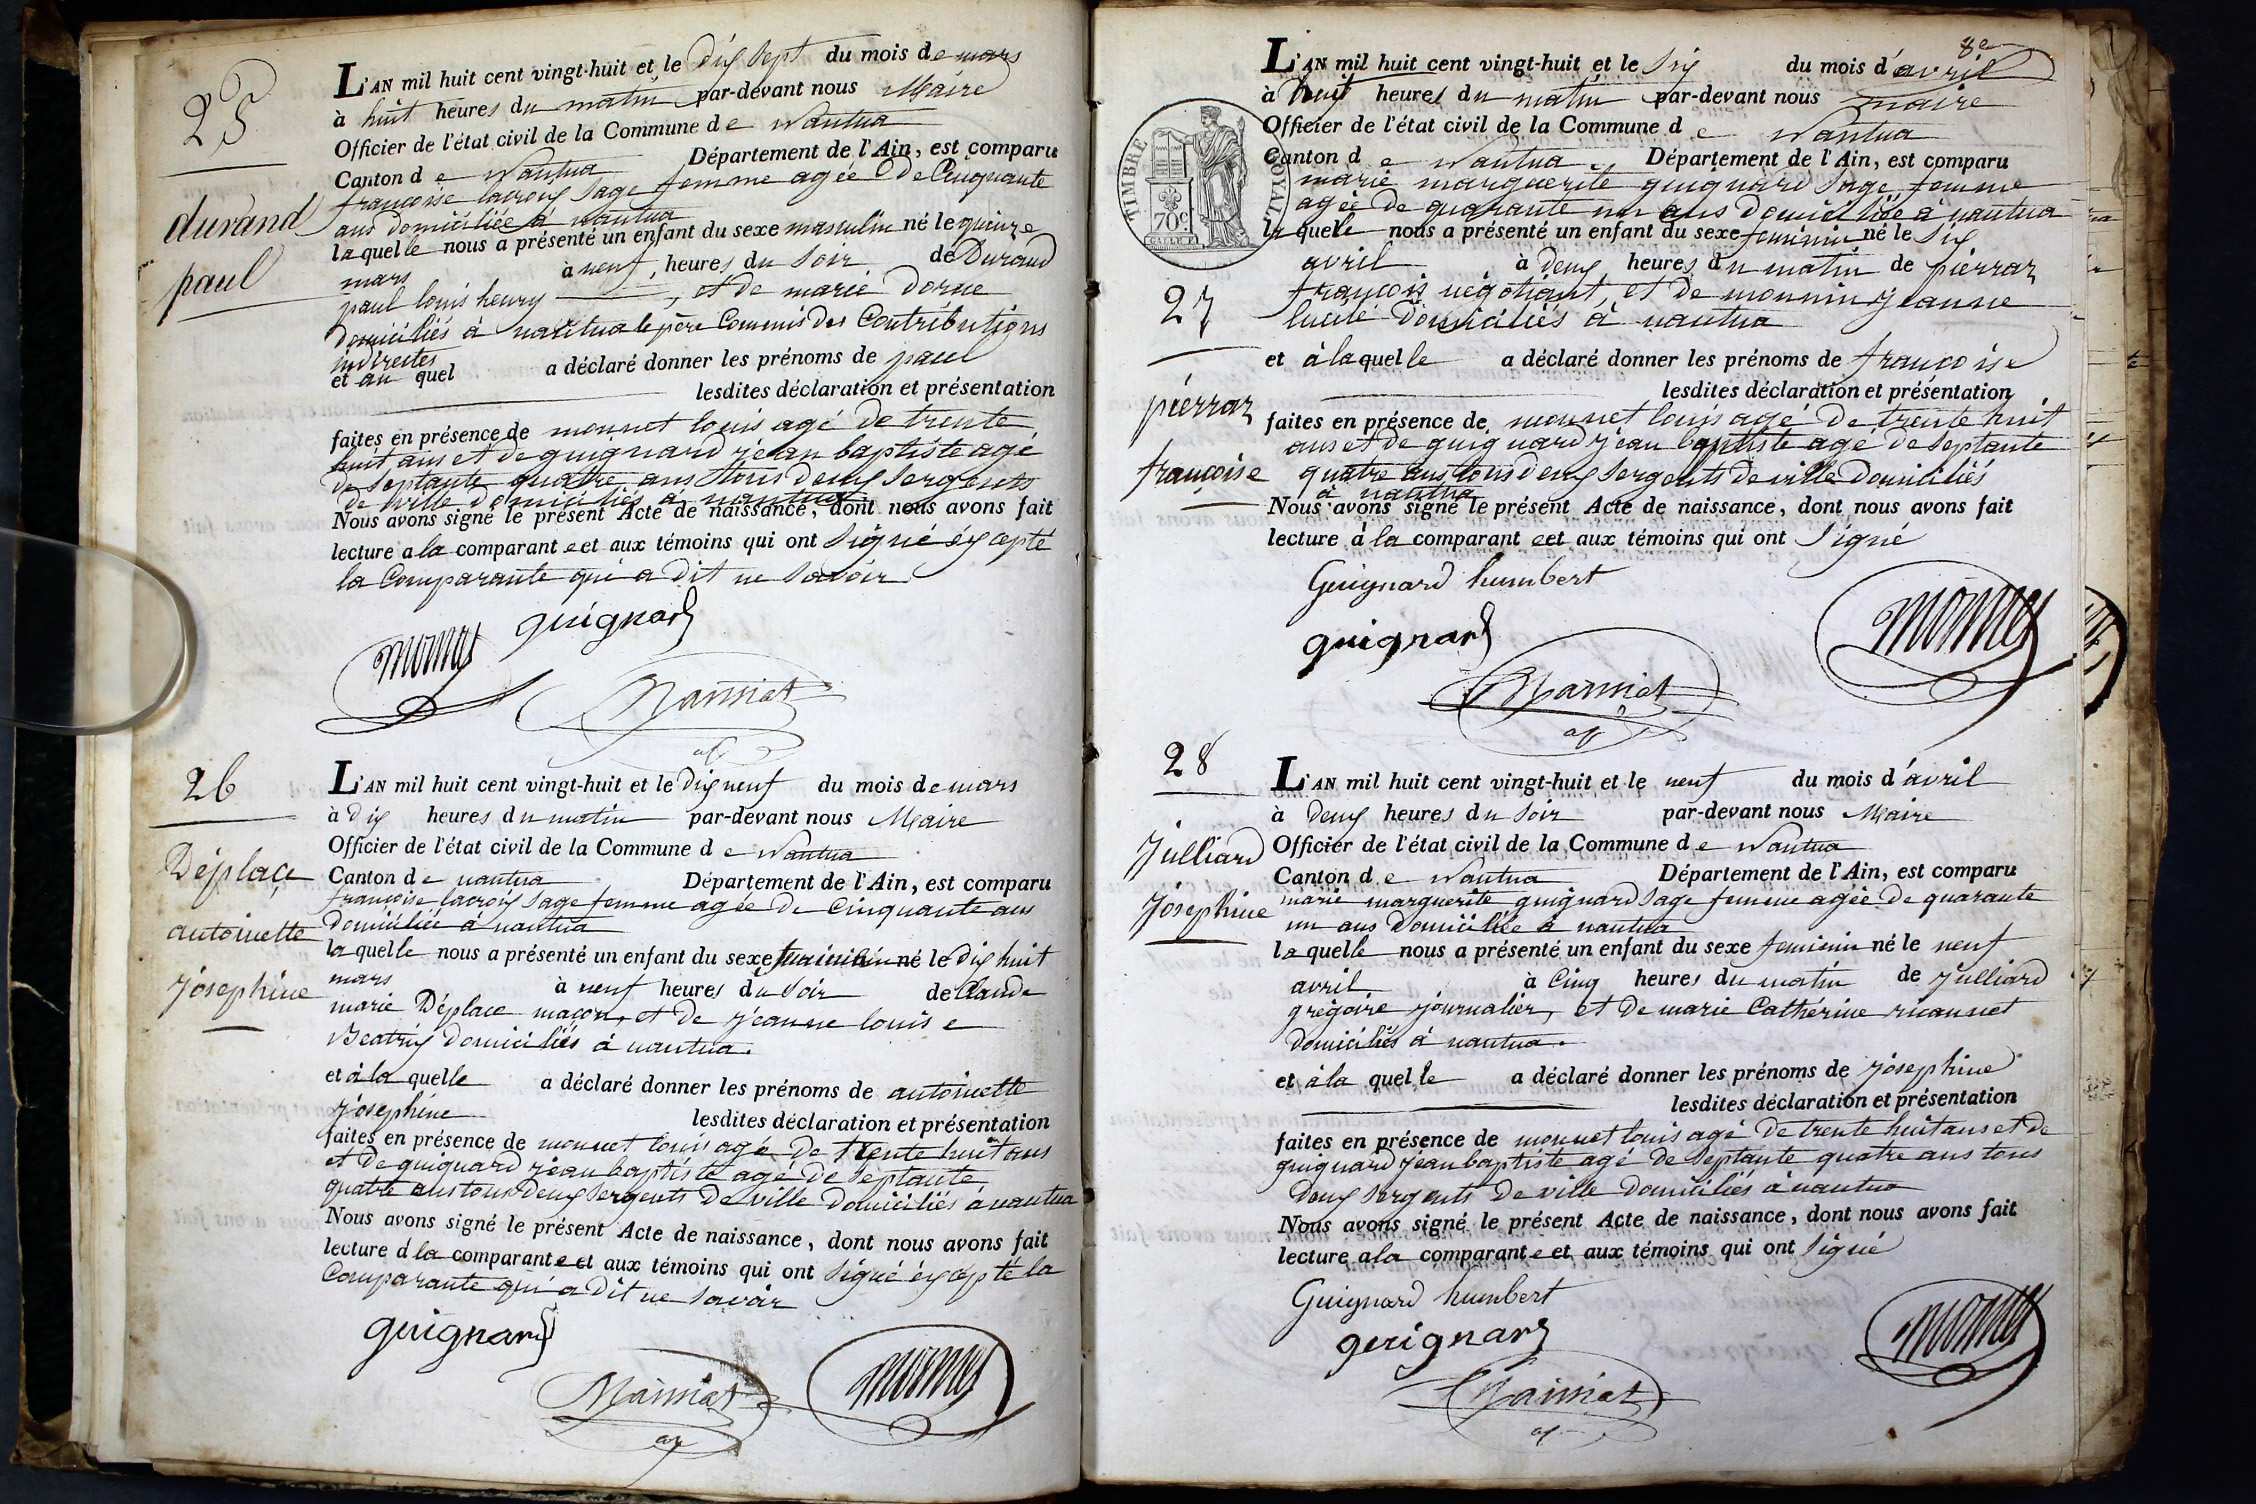 25
durand
paul
L'AN mil huit cent vingt-huit et le dix sept du mois de mars
à huit heures du matin par-devant nous Maire
Officier de l'état civil de la Commune de Nantua
Canton de Nantua Département de l'Ain, est comparu
françoise lacroix sage femme agée de Cinquante
ans domiciliée à nantua
laquelle nous a présenté un enfant du sexe masculin né le quinze
mars à neuf heures du soir de Durand
paul louis henry, et de marie dorne
domiciliés à nantua le père Commis des Contributions
indirectes
et au quel a déclaré donner les prénoms de paul
lesdites déclaration et présentation
faites en présence de monnet louis agé de trente
huit ans et de guignard jean baptiste agé
de septante quatre ans tous deux sergents
de ville domiciliés à nantua
Nous avons signé le présent Acte de naissance, dont nous avons fait
lecture a la comparante et aux témoins qui ont signé éxcepté
la Comparante qui a dit ne savoir
guignard
monnet
26
Déplace
antoinette
josephine
L'AN mil huit cent vingt-huit et le dix neuf du mois de mars
à dix heures du matin par-devant nous Maire
Officier de l'état civil de la Commune de Nantua
Canton de nantua Département de l'Ain, est comparu
françoise lacroix sage femme agée de Cinquante ans
domiciliée à nantua
laquelle nous a présenté un enfant du sexe feminin né le dix huit
mars à neuf heures du soir de Claude
marie Déplace maçon, et de jeanne louise
Beatrix domiciliés à nantua.
et à la quelle a déclaré donner les prénoms de antoinette
josephine lesdites déclaration et présentation
faites en présence de monnet louis agé de trente huit ans
et de guignard jean baptiste agé de septante
quatre ans tous deux sergents de ville domiciliés a nantua
Nous avons signé le présent Acte de naissance, dont nous avons fait
lecture à la comparante et aux témoins qui ont signé éxcepté la
Comparante qui a dit ne savoir
guignard
monnet
8e
TIMBRE ROYAL
70c.
27
pierraz
françoise
L'AN mil huit cent vingt-huit et le six du mois d'avril
à huit heures du matin par-devant nous maire
Officier de l'état civil de la Commune de Nantua
Canton de Nantua. Département de l'Ain, est comparu
marie marguerite guignard sage femme
agée de quarante un ans domiciliée à nantua
laquelle nous a présenté un enfant du sexe feminin né le six
avril à deux heures du matin de pierraz
françois négotiant, et de monnin jeanne
lucile domiciliés à nantua
et à laquelle a déclaré donner les prénoms de françoise
lesdites déclaration et présentation
faites en présence de monnet louis agé de trente huit
ans et de guignard jean baptiste agé de septante
quatre ans tous deux sergents de ville domiciliés
à nantua
Nous avons signé le présent Acte de naissance, dont nous avons fait
lecture à la comparante et aux témoins qui ont signé
Guignard humbert
guignard
monnet
28
Julliard
Josephine
L'AN mil huit cent vingt-huit et le neuf du mois d'avril
à deux heures du soir par-devant nous Maire
Officier de l'état civil de la Commune de Nantua
Canton de Nantua Département de l'Ain, est comparu
marie marguerite guignard sage femme agée de quarante
un ans domiciliée à nantua
laquelle nous a présenté un enfant du sexe feminin né le neuf
avril à Cinq heures du matin de julliard
grégoire journalier, et de marie Catherine
domiciliés à nantua.
et à la quelle a déclaré donner les prénoms de josephine
lesdites déclaration et présentation
faites en présence de monnet louis agé de trente huit ans et de
guignard jean baptiste agé de septante quatre ans tous
deux sergents de ville domiciliés à nantua
Nous avons signé le présent Acte de naissance, dont nous avons fait
lecture a la comparante et aux témoins qui ont signé
Guignard humbert
guignard
monnet